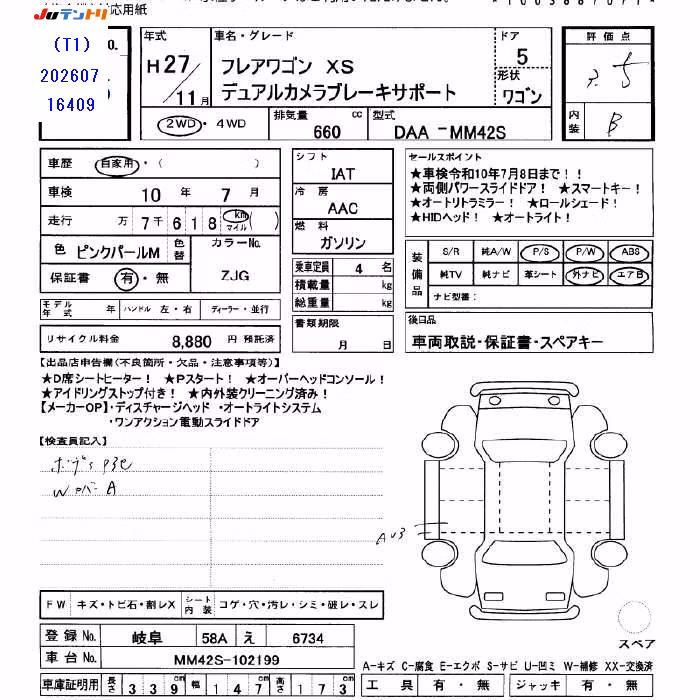 Juテントリ 応用紙
(T1)
202607
16409
No.
年式
H27/11月
車名・グレード
フレアワゴン XS
デュアルカメラブレーキサポート
ドア
5
形状
ワゴン
評価点
5
内装
B
2WD・4WD
排気量
660 cc
型式
DAA-MM42S
車歴 自家用・( )
車検 10年 7月
走行 万 7千 6 1 8 km マイル ( )
色 ピンクパールM 色替 カラーNo.
保証書 有・無 ZJG
モデル年式 年 ハンドル 左・右 ディーラー・並行
リサイクル料金 8,880 円 預託済
シフト
IAT
冷房
AAC
燃料
ガソリン
乗車定員 4 名
積載量 kg
総重量 kg
書類期限
月 日
セールスポイント
★車検令和10年7月8日まで！！
★両側パワースライドドア！ ★スマートキー！
★オートリトラミラー！ ★ロールシェード！
★HIDヘッド！ ★オートライト！
装備品
S/R 純A/W P/S P/W ABS
純TV 純ナビ 革シート 外ナビ エアB
ナビ型番：
後日品
車両取説・保証書・スペアキー
【出品店申告欄(不良箇所・欠品・注意事項等)】
★D席シートヒーター！ ★Pスタート！ ★オーバーヘッドコンソール！
★アイドリングストップ付き！ ★内外装クリーニング済み！
【メーカーOP】・ディスチャージヘッド ・オートライトシステム
・ワンアクション電動スライドドア
【検査員記入】
A
FW キズ・トビ石・割レX シート内装 コゲ・穴・汚レ・シミ・破レ・スレ
登録No. 岐阜 58A え 6734
車台No. MM42S-102199
車庫証明用 長さ 339cm 幅 147cm 高さ 173cm
スペア
A-キズ C-腐食 E-エクボ S-サビ U-凹ミ W-補修 XX-交換済
工具 有・無 ジャッキ 有・無